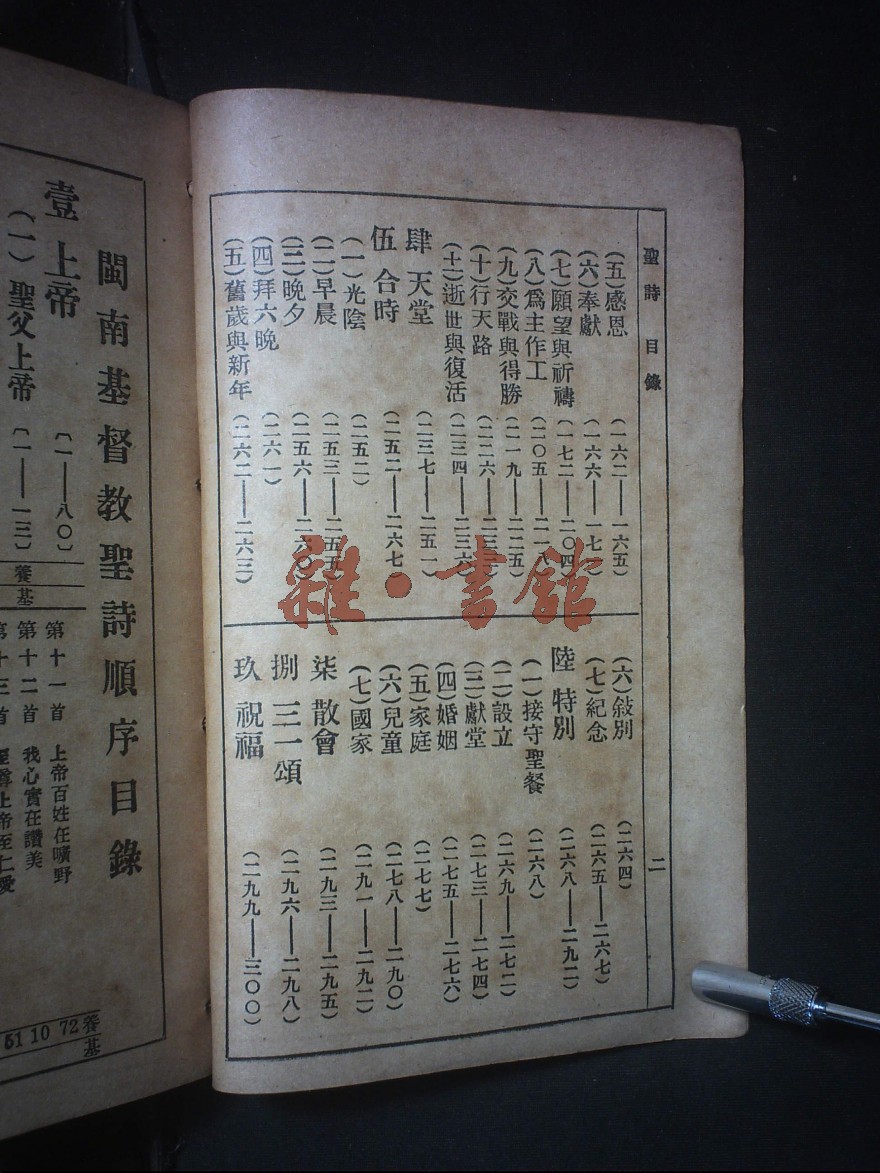 聖詩目錄 二
（五）感恩（一六二——一六五）
（六）奉獻（一六六——一七一）
（七）願望與祈禱（一七二——二〇四）
（八）爲主作工（二〇五——二一八）
（九）交戰與得勝（二一九——二二五）
（十）行天路（二二六——二三三）
（十一）逝世與復活（二三四——二三六）
肆 天堂（二三七——二五一）
伍 合時（二五二——二六七）
（一）光陰（二五二）
（二）早晨（二五三——二五五）
（三）晚夕（二五六——二六〇）
（四）拜六晚（二六一）
（五）舊歲與新年（二六二——二六三）
（六）敍別（二六四）
（七）紀念（二六五——二六七）
陸 特別（二六八——二九二）
（一）接守聖餐（二六八）
（二）設立（二六九——二七二）
（三）獻堂（二七三——二七四）
（四）婚姻（二七五——二七六）
（五）家庭（二七七）
（六）兒童（二七八——二九〇）
（七）國家（二九一——二九二）
柒 散會（二九三——二九五）
捌 三一頌（二九六——二九八）
玖 祝福（二九九——三〇〇）
雜·書館
閩南基督教聖詩順序目錄
壹 上帝〔一——八〇〕
（一）聖父上帝〔一——一三〕
養基
第十一首 上帝百姓任曠野
第十二首 我心實在讚美
十三首 至尊上帝至仁愛
養基
72
10
51